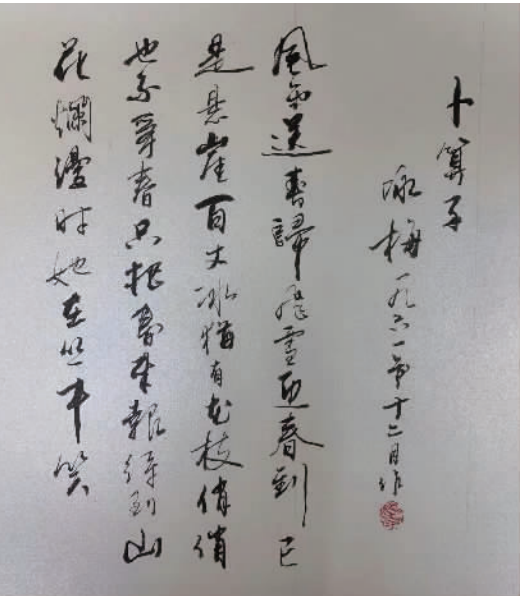 卜算子
咏梅一九六一年十二月作
風雨送春歸飛雪迎春到已
是悬崖百丈冰猶有花枝俏俏
也不爭春只把春來報待到山
花爛漫時她在丛中笑